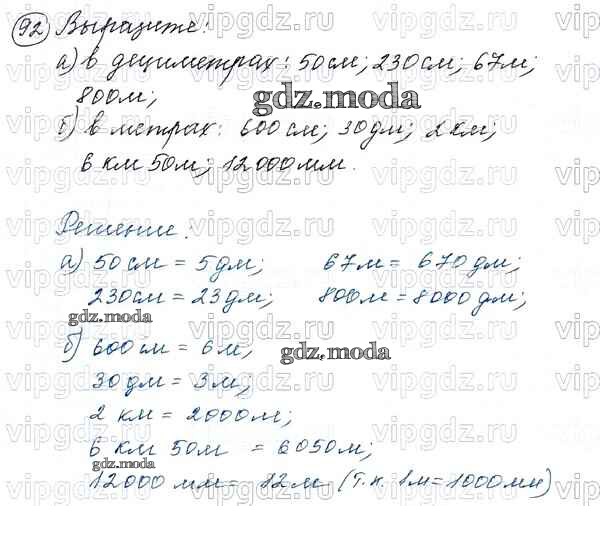 92 Выразите:
а) в дециметрах: 50 см; 230 см; 67 м;
800 м;
gdz.moda
б) в метрах: 600 см; 30 дм; 2 км;
6 км 50 м; 12 000 мм.
Решение:
а) 50 см = 5 дм; 67 м = 670 дм;
230 см = 23 дм; 800 м = 8000 дм;
gdz.moda
б) 600 см = 6 м;
gdz.moda
30 дм = 3 м;
2 км = 2000 м;
6 км 50 м = 6050 м;
gdz.moda
12000 мм = 12 м (т.к. 1 м = 1000 мм)
vipgdz.ru